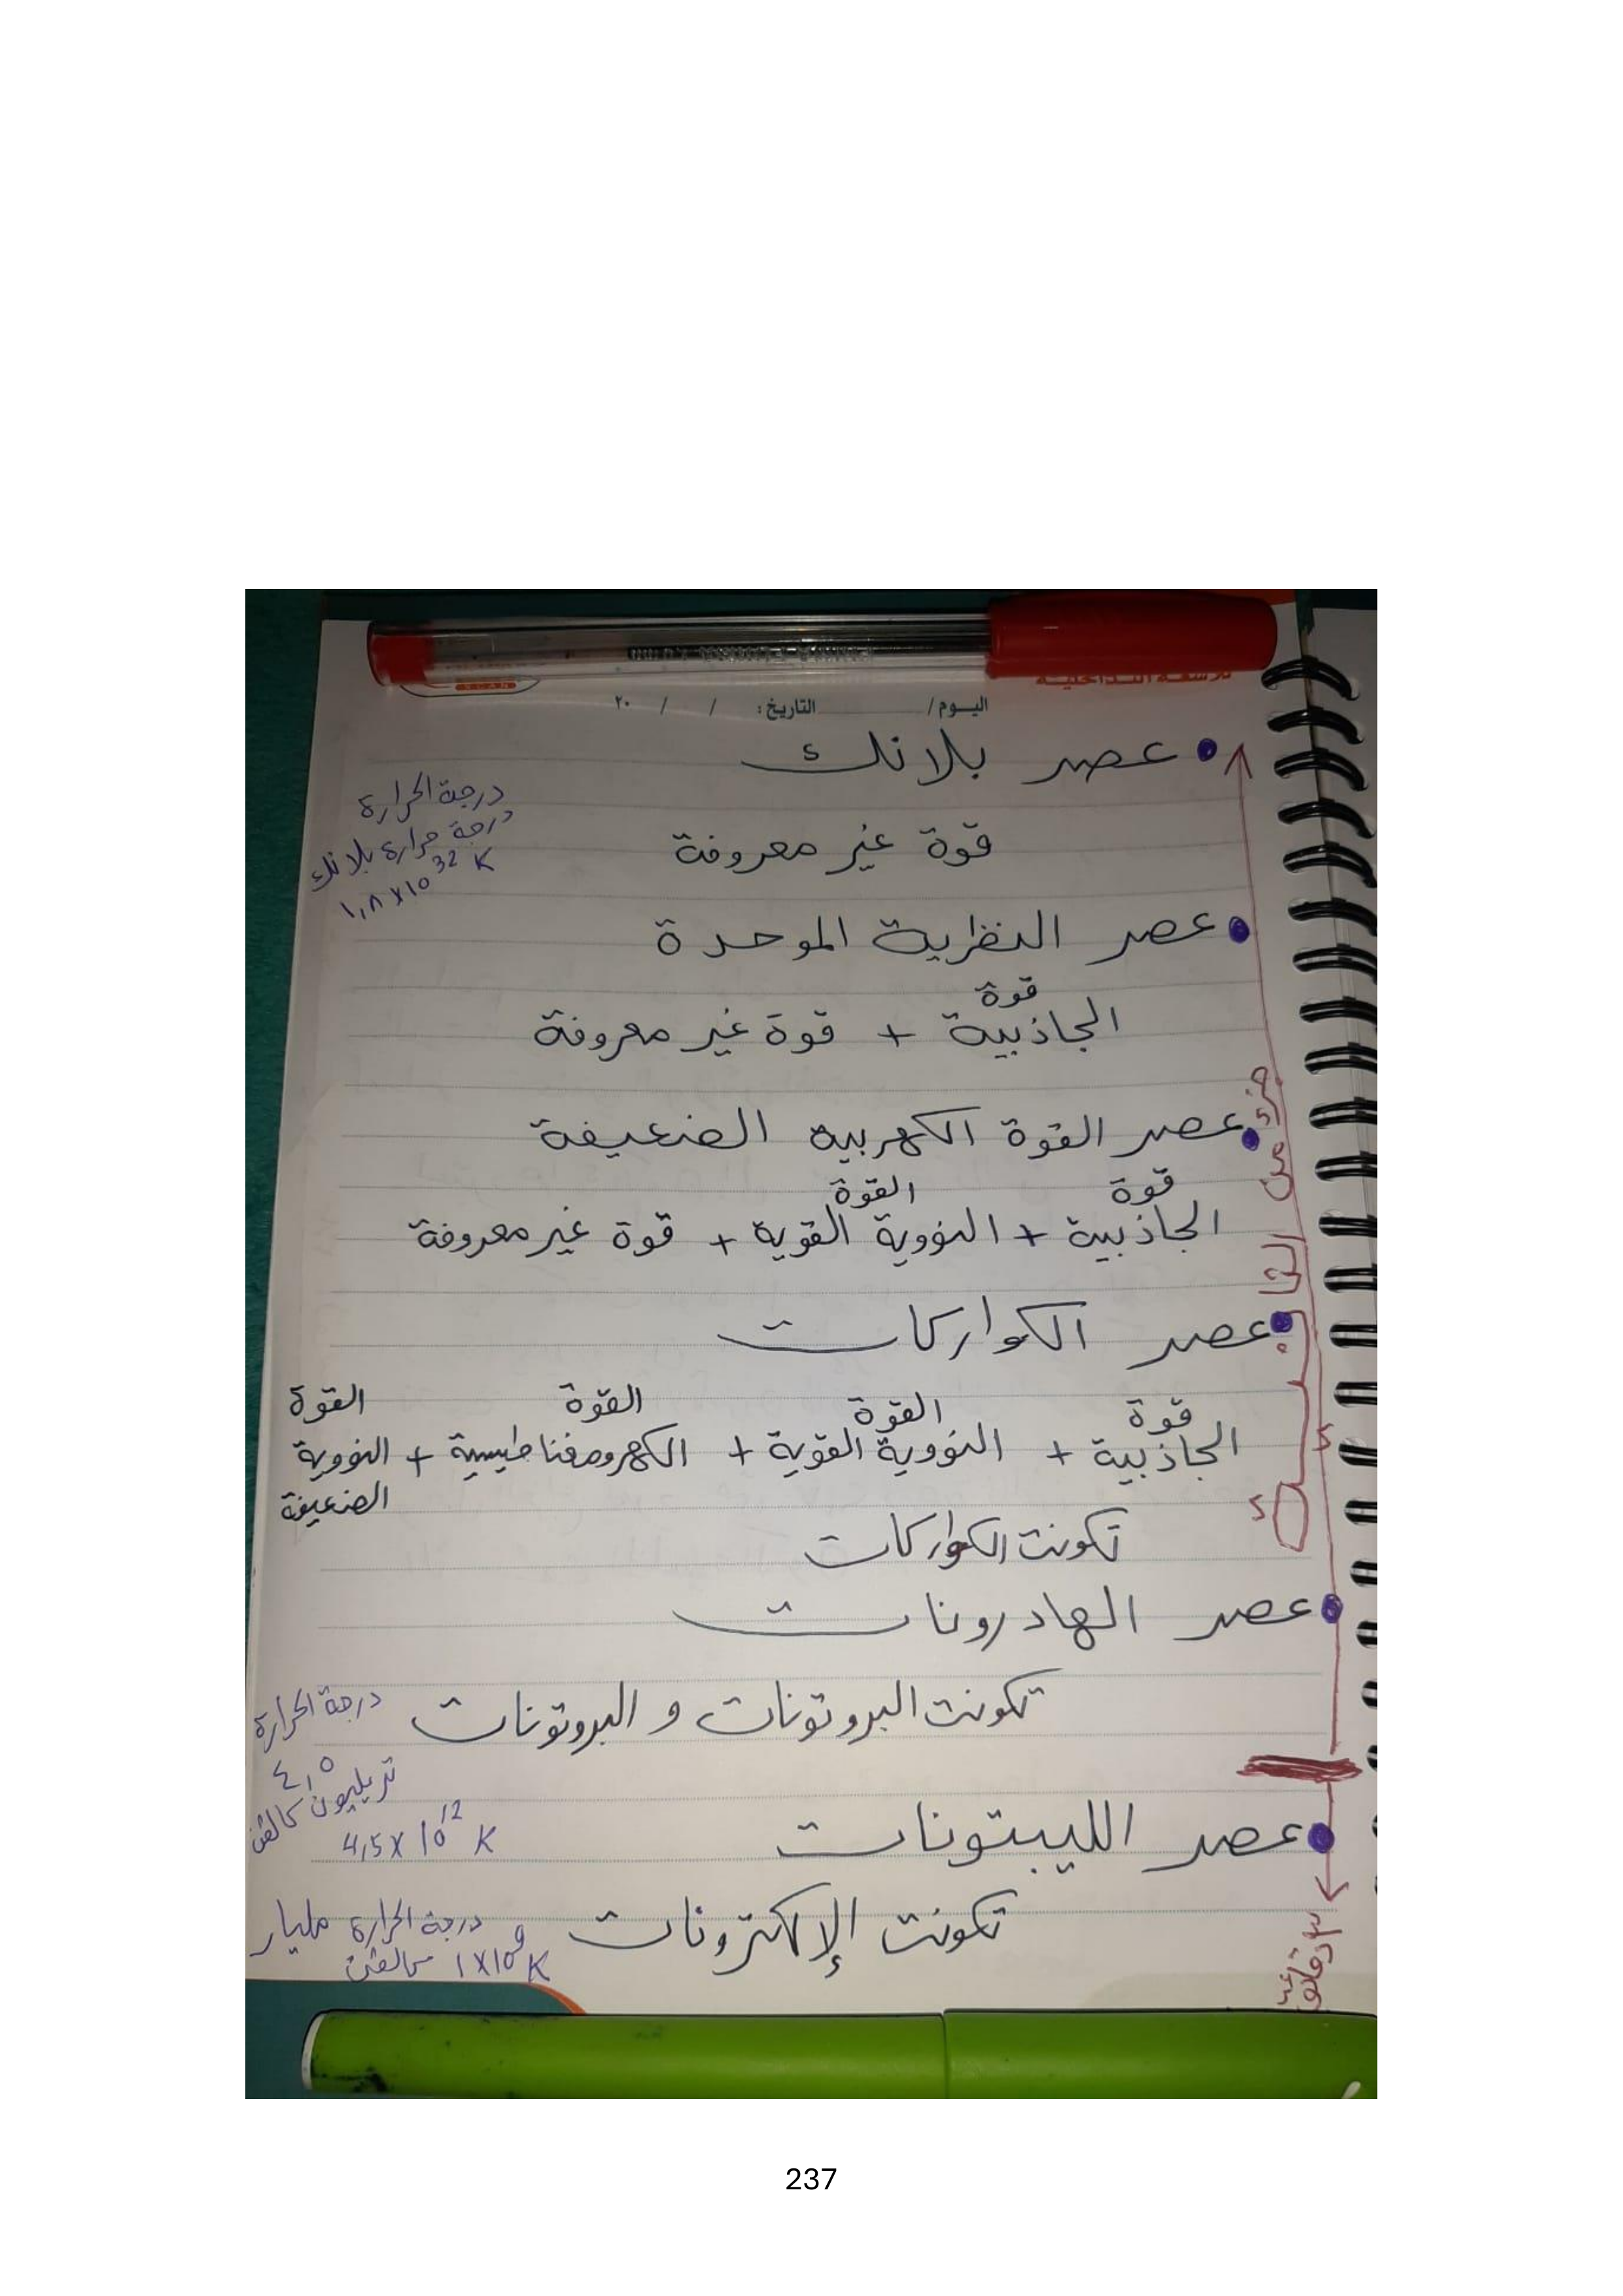 اليوم / التاريخ: / / ٢٠
عصر بلانك
درجة الحرارة
درجة حرارة بلانك
١,٨x١٠ 32 K
قوة غير معروفة
عصر النظرية الموحدة
قوة
الجاذبية + قوة غير معروفة
عصر القوة الكهربيه الضعيفة
قوة القوة
الجاذبية + النووية القوية + قوة غير معروفة
عصر الكواركات
قوة القوة القوة القوة
الجاذبية + النووية القوية + الكهرومغناطيسية + النووية
الضعيفة
تكونت الكواركات
عصر الهادرونات
تكونت البروتونات و البروتونات
درجة الحرارة
٤,٥
تريليون كالفن
4,5 x 10 12 K
عصر الليبتونات
تكونت الإلكترونات
درجة الحرارة مليار
كالفن 1 X 10 9 K
جزء من الثانية
٣ دقائق
237